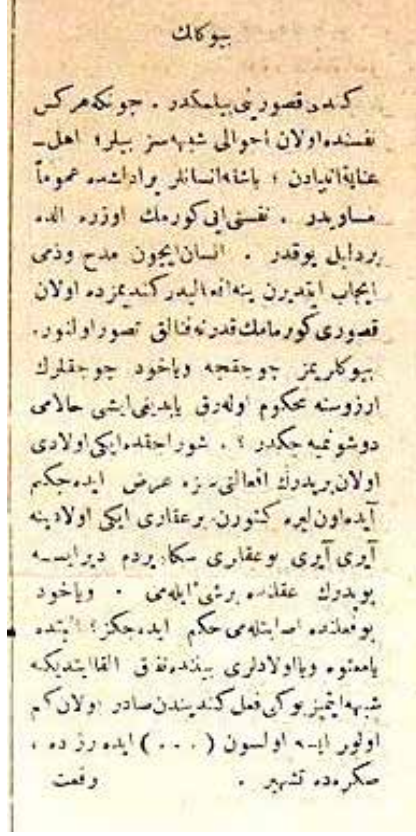 بیوکلك
كندی قصورینی بیلمكدر . چونكه هركس
نفسنده اولان احوالی شبهه‌سز بیلر ؛ اهل
عنایة انیادن ؛ باشقه انسانلر براداشده عموماً
مساویدر . نفسنی ایی كورمك اوزره الده
بردلیل یوقدر . انسان ایچون مدح وذمی
ایجاب ایتدیرن ینه افعالیدر كندیمزده اولان
قصوری كورمامك قدر نه فنالق تصور اولنور .
بیوكلریمز چوجقجه ویاخود چوجقلرك
آرزوسنه محكوم اوله‌رق یاپدیغی ایشی حالامی
دوشونمیه‌جكدر ؟ . شوراجقده ایكی اولادی
اولان برپدرك افعالنی سزه عرض ایده‌جكم
آیده اون لیره كتورن برعقاری ایكی اولادینه
آیری آیری بو عقاری سكا ویردم دیرایسه
بوپدرك عقلنده برشی ایله‌می . ویاخود
بوفعلنده اصابتله‌می حكم ایده‌جكز ؟ البته
یامعتوه ویا اولادلری بیننده نفاق القا ایتدیكنه
شبهه ایتمیز بوكبی فعل كندیندن صادر اولان كم
اولور ایسه اولسون ( . . . ) ایده‌رز ده ،
صكره‌ده تشهیر . رفعت